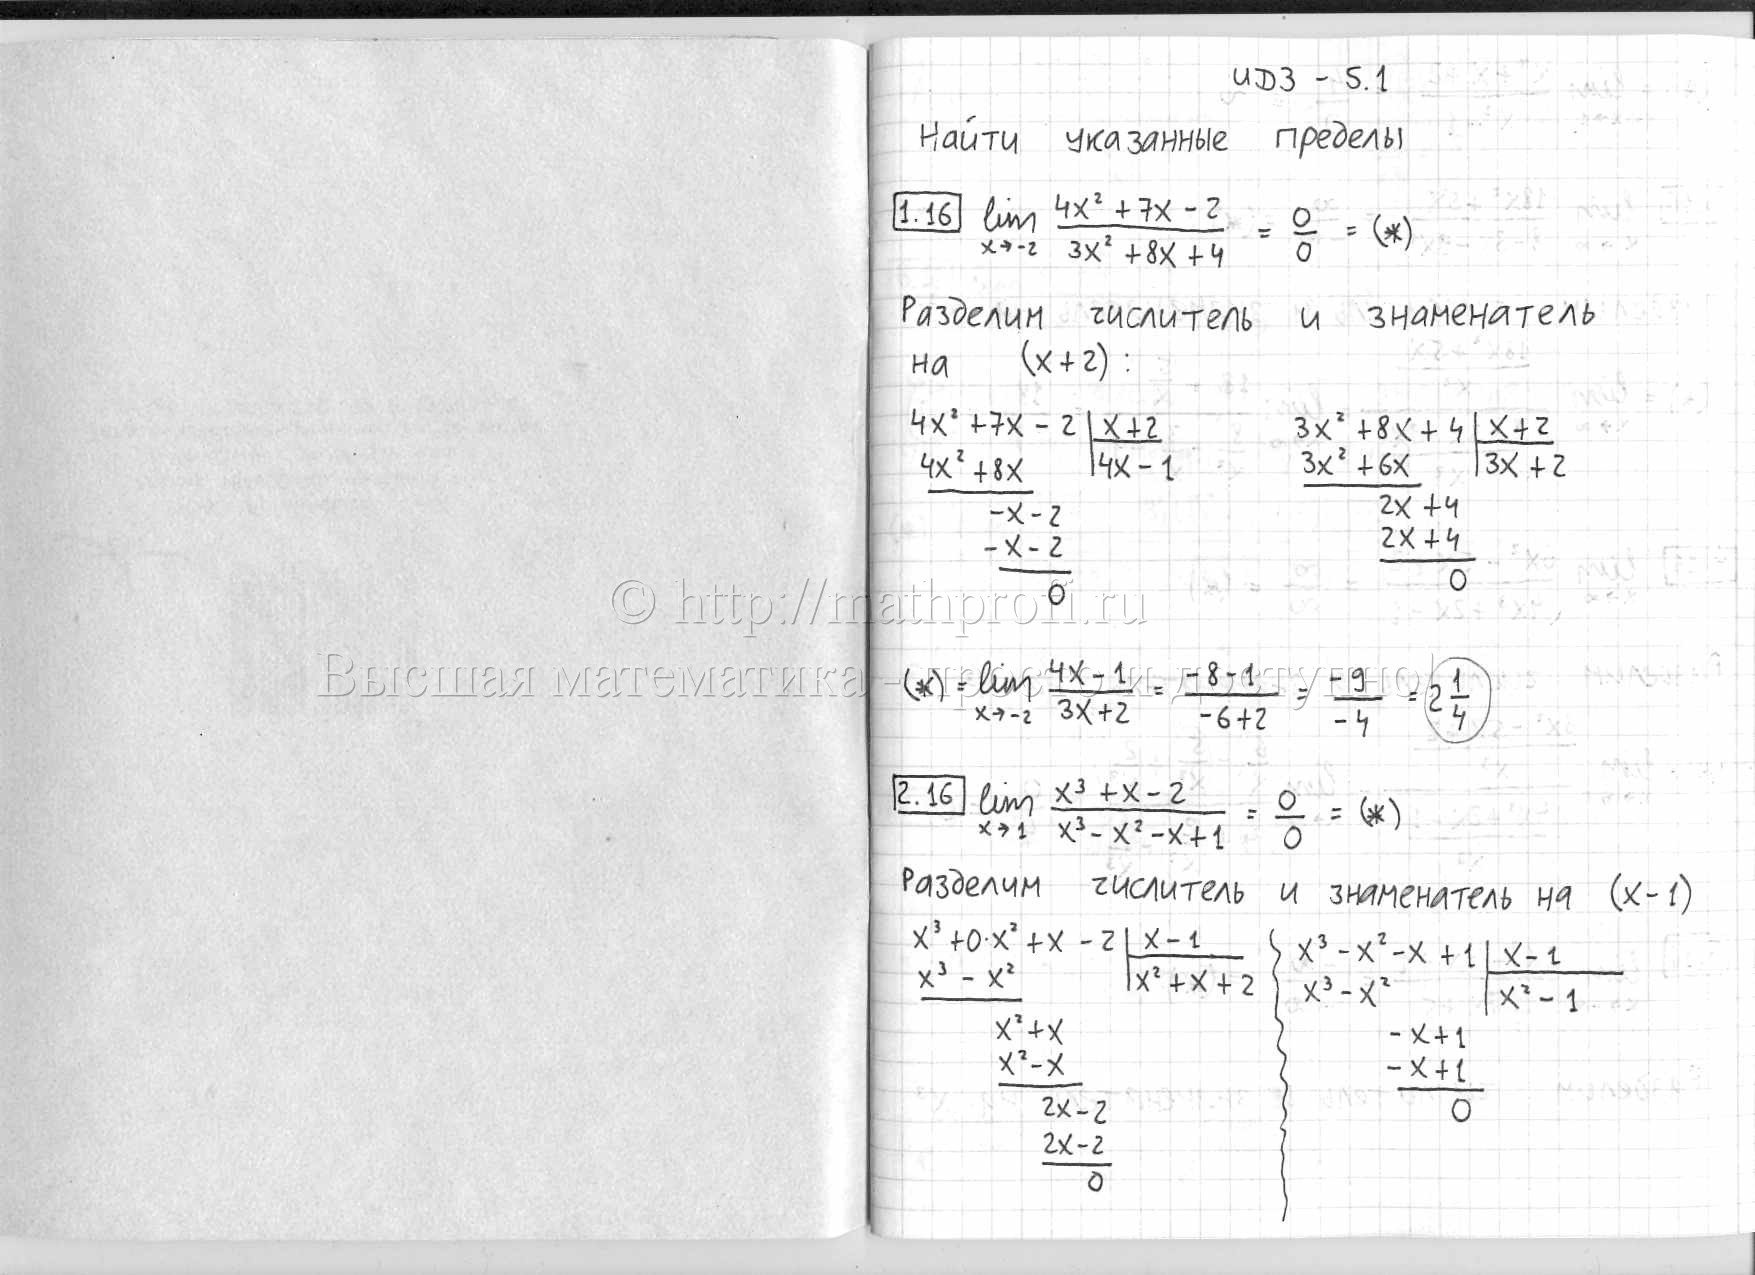 ИДЗ - 5.1
Найти указанные пределы
1.16 lim x→-2 (4x² + 7x - 2)/(3x² + 8x + 4) = 0/0 = (*)
Разделим числитель и знаменатель
на (x+2):
4x² + 7x - 2 | x+2
4x² + 8x | 4x - 1
-x - 2
-x - 2
0
3x² + 8x + 4 | x+2
3x² + 6x | 3x + 2
2x + 4
2x + 4
0
© http://mathprofi.ru
Высшая математика – просто и доступно!
(*) = lim x→-2 (4x - 1)/(3x + 2) = (-8 - 1)/(-6 + 2) = -9/-4 = 2 1/4
2.16 lim x→1 (x³ + x - 2)/(x³ - x² - x + 1) = 0/0 = (*)
Разделим числитель и знаменатель на (x-1)
x³ + 0·x² + x - 2 | x - 1
x³ - x² | x² + x + 2
x² + x
x² - x
2x - 2
2x - 2
0
x³ - x² - x + 1 | x - 1
x³ - x² | x² - 1
-x + 1
-x + 1
0